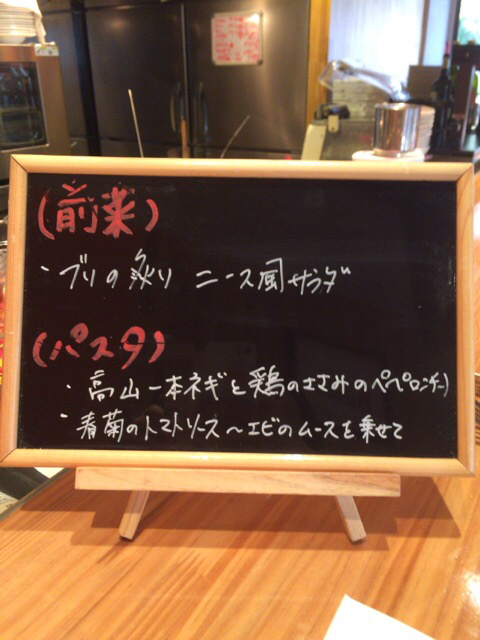 (前菜)
・ブリの炙り ニース風サラダ
(パスタ)
・高山一本ネギと鶏のささみのペペロンチーノ
・春菊のトマトソース〜エビのムースを乗せて